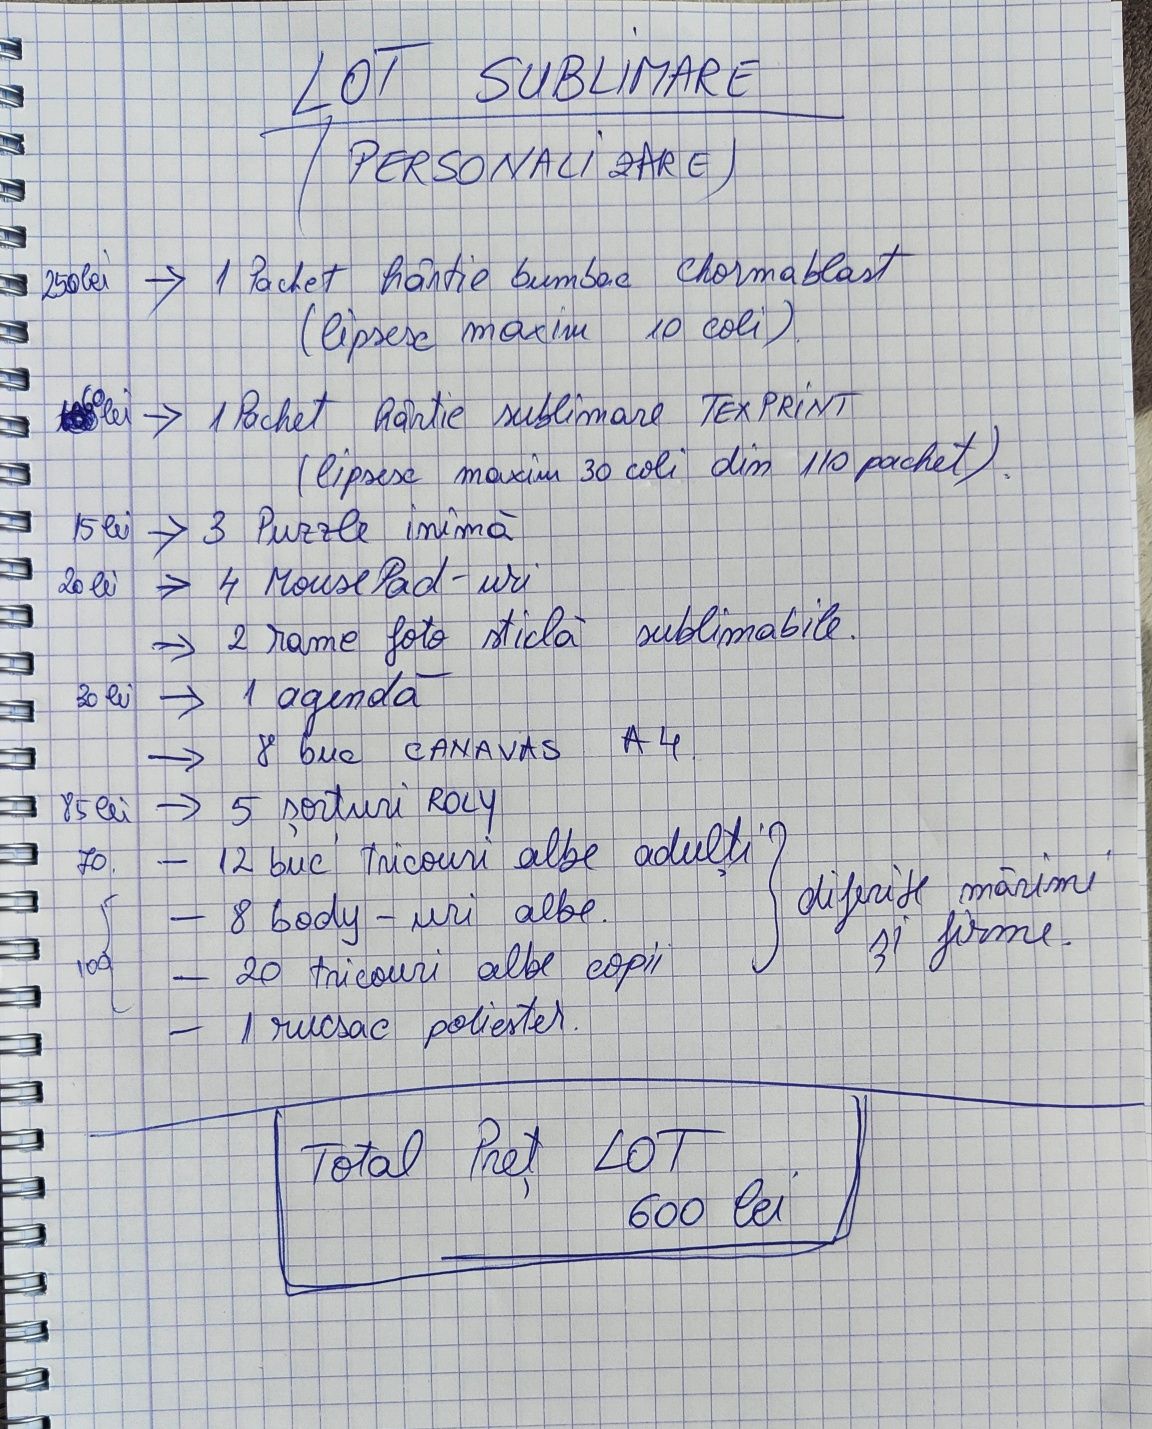 LOT SUBLIMARE
(PERSONALIZARE)
250lei → 1 Pachet hârtie bumbac Chormablast
(lipsesc maxim 10 coli).
60 lei → 1 Pachet hârtie sublimare TEXPRINT
(lipsesc maxim 30 coli din 110 pachet).
15 lei → 3 Puzzle inimă
20 lei → 4 Mouse Pad-uri
→ 2 rame foto sticlă sublimabile.
30 lei → 1 agendă
→ 8 buc CANAVAS A4.
85 lei → 5 șorțuri ROLY
70. - 12 buc tricouri albe adulți
- 8 body-uri albe. } diferite mărimi
100 { - 20 tricouri albe copii și firme.
- 1 rucsac poliester.
Total Preț LOT
600 lei